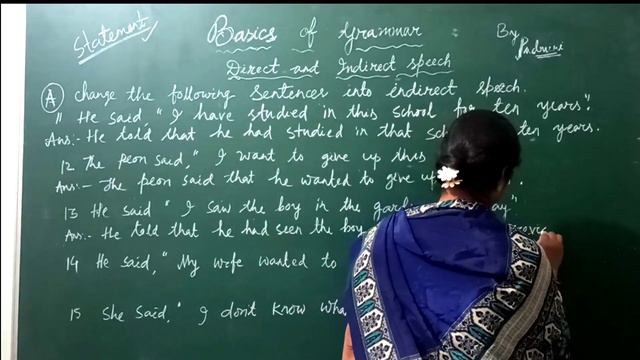 Statement
Basics of Grammar :
By
Direct and Indirect speech
A change the following sentences into indirect speech.
11 He said, "I have studied in this school for ten years".
Ans:- He told that he had studied in that ten years.
12 The peon said, "I want to give up this
Ans:- The peon said that he wanted to give up
13 He said "I saw the boy in the
Ans:- He told that he had seen the boy
14 He said, "My wife wanted to
15 She said, "I don't know